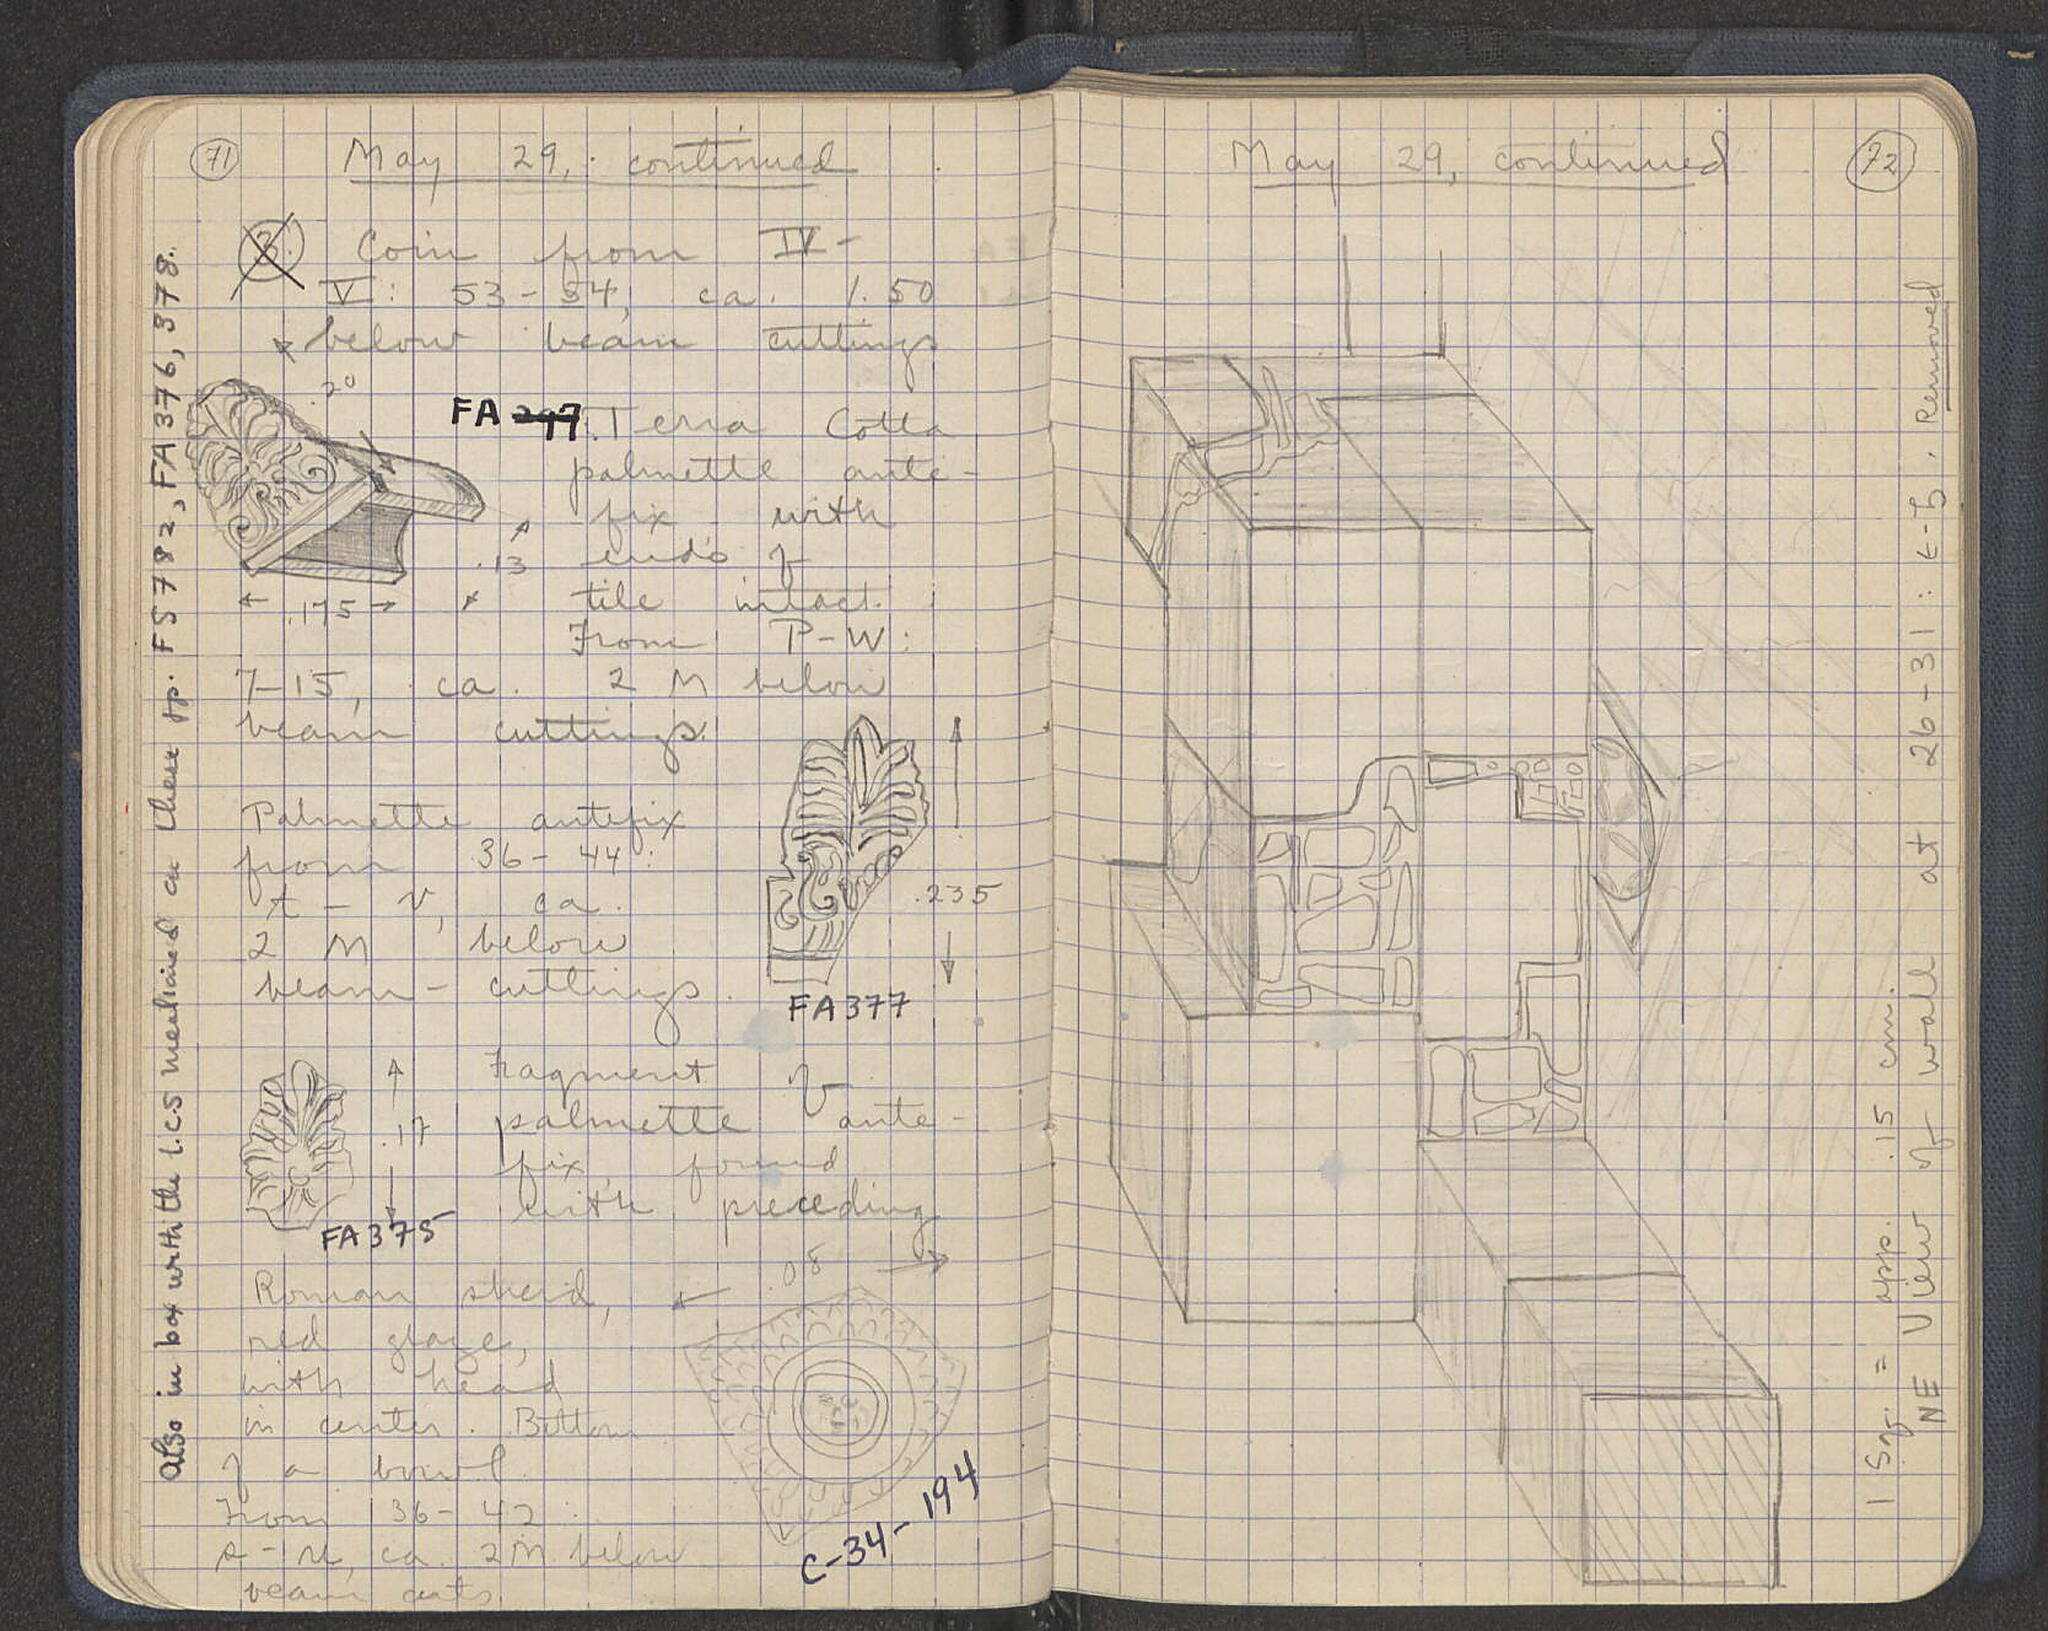 71
May 29, continued
3. Coin from IV-
V: 53-54, ca. 1.50
below beam cuttings
.20
FA 297. Terra Cotta
palmette ante-
fix with
.13 ends of
.175 tile intact.
From P-W:
7-15, ca. 2 M below
beam cuttings.
Palmette antefix
from 36-44:
t-v, ca.
2 M below
beam-cuttings.
.235
FA377
Fragment of
.17 palmette ante-
fix, found
with preceding
FA375
.08
Roman sherd,
red glaze,
with head
in center. Bottom
of a bowl.
From 36-42:
ca. 2 M below
beam cuts.
C-34-194
Also in box with the L.C.S mentioned on these pp. FS782, FA376, 378.
May 29, continued
72
1 Sq. = app. .15 cm.
NE View of wall at 26-31: Removed